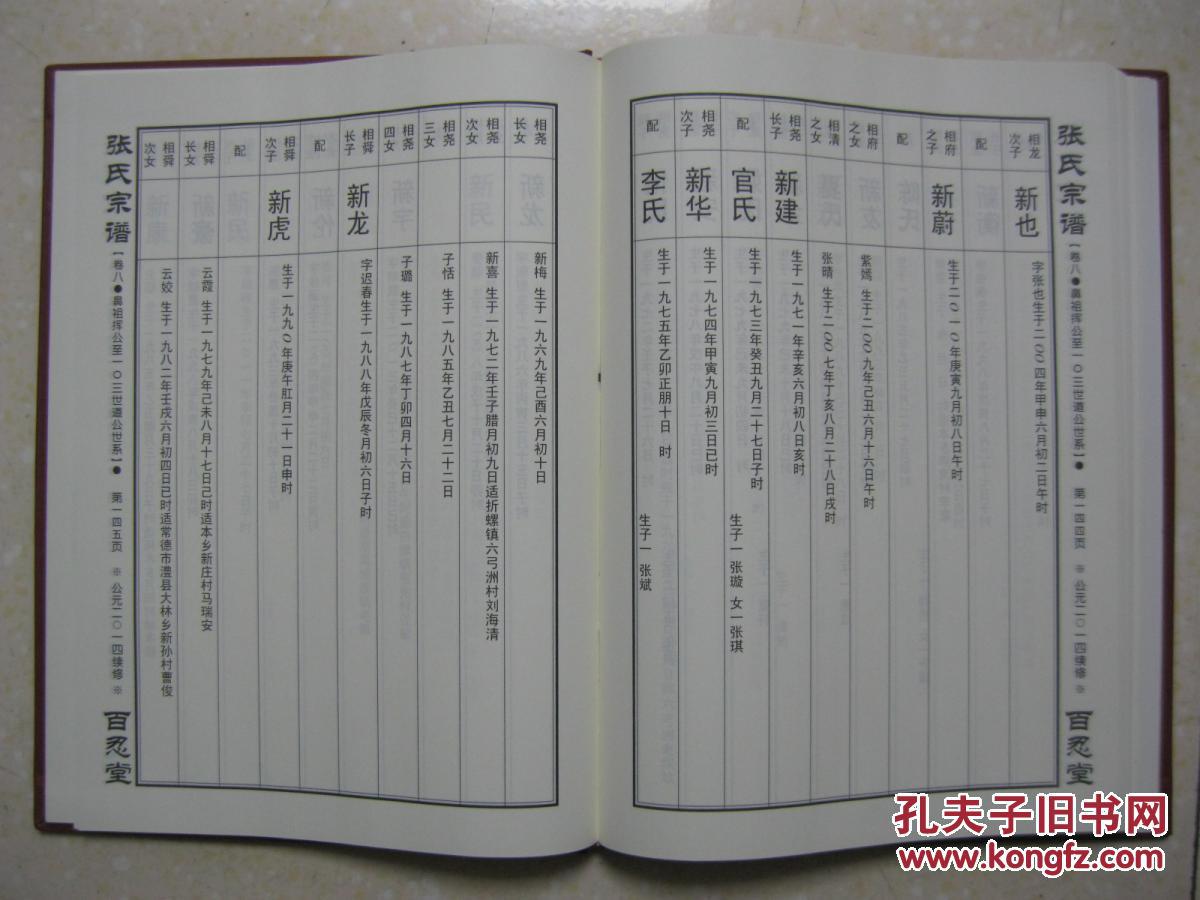 张氏宗谱【卷八●鼻祖挥公至一〇三世道公世系】● 第一四四页 ※ 公元二〇一四续修 ※ 百忍堂
相龙次子 新也 字张也生于二〇〇四年甲申六月初二日午时
配
相府之子 新蔚 生于二〇一〇年庚寅九月初八日午时
配
相府之女 紫嫣 生于二〇〇九年己丑六月十六日午时
相清之女 张晴 生于二〇〇七年丁亥八月二十八日戌时
相尧长子 新建 生于一九七一年辛亥六月初八日亥时
配 官氏 生于一九七三年癸丑九月二十七日子时 生子一 张璇 女一张琪
相尧次子 新华 生于一九七四年甲寅九月初三日已时
配 李氏 生于一九七五年乙卯正朋十日 时 生子一 张斌
相尧长女 新梅 生于一九六九年己酉六月初十日
相尧次女 新喜 生于一九七二年壬子腊月初九日适折螺镇六弓洲村刘海清
相尧三女 子恬 生于一九八五年乙丑七月二十二日
相尧四女 子璐 生于一九八七年丁卯四月十六日
相舜长子 新龙 字迟春生于一九八八年戊辰冬月初六日子时
配
相舜次子 新虎 生于一九九〇年庚午肛月二十一日申时
配
相舜长女 云霞 生于一九七九年己未八月十七日己时适本乡新庄村马瑞安
相舜次女 云姣 生于一九八二年壬戌六月初四日已时适常德市澧县大林乡新孙村曹俊
张氏宗谱【卷八●鼻祖挥公至一〇三世道公世系】● 第一四五页 ※ 公元二〇一四续修 ※ 百忍堂
孔夫子旧书网
www.kongfz.com